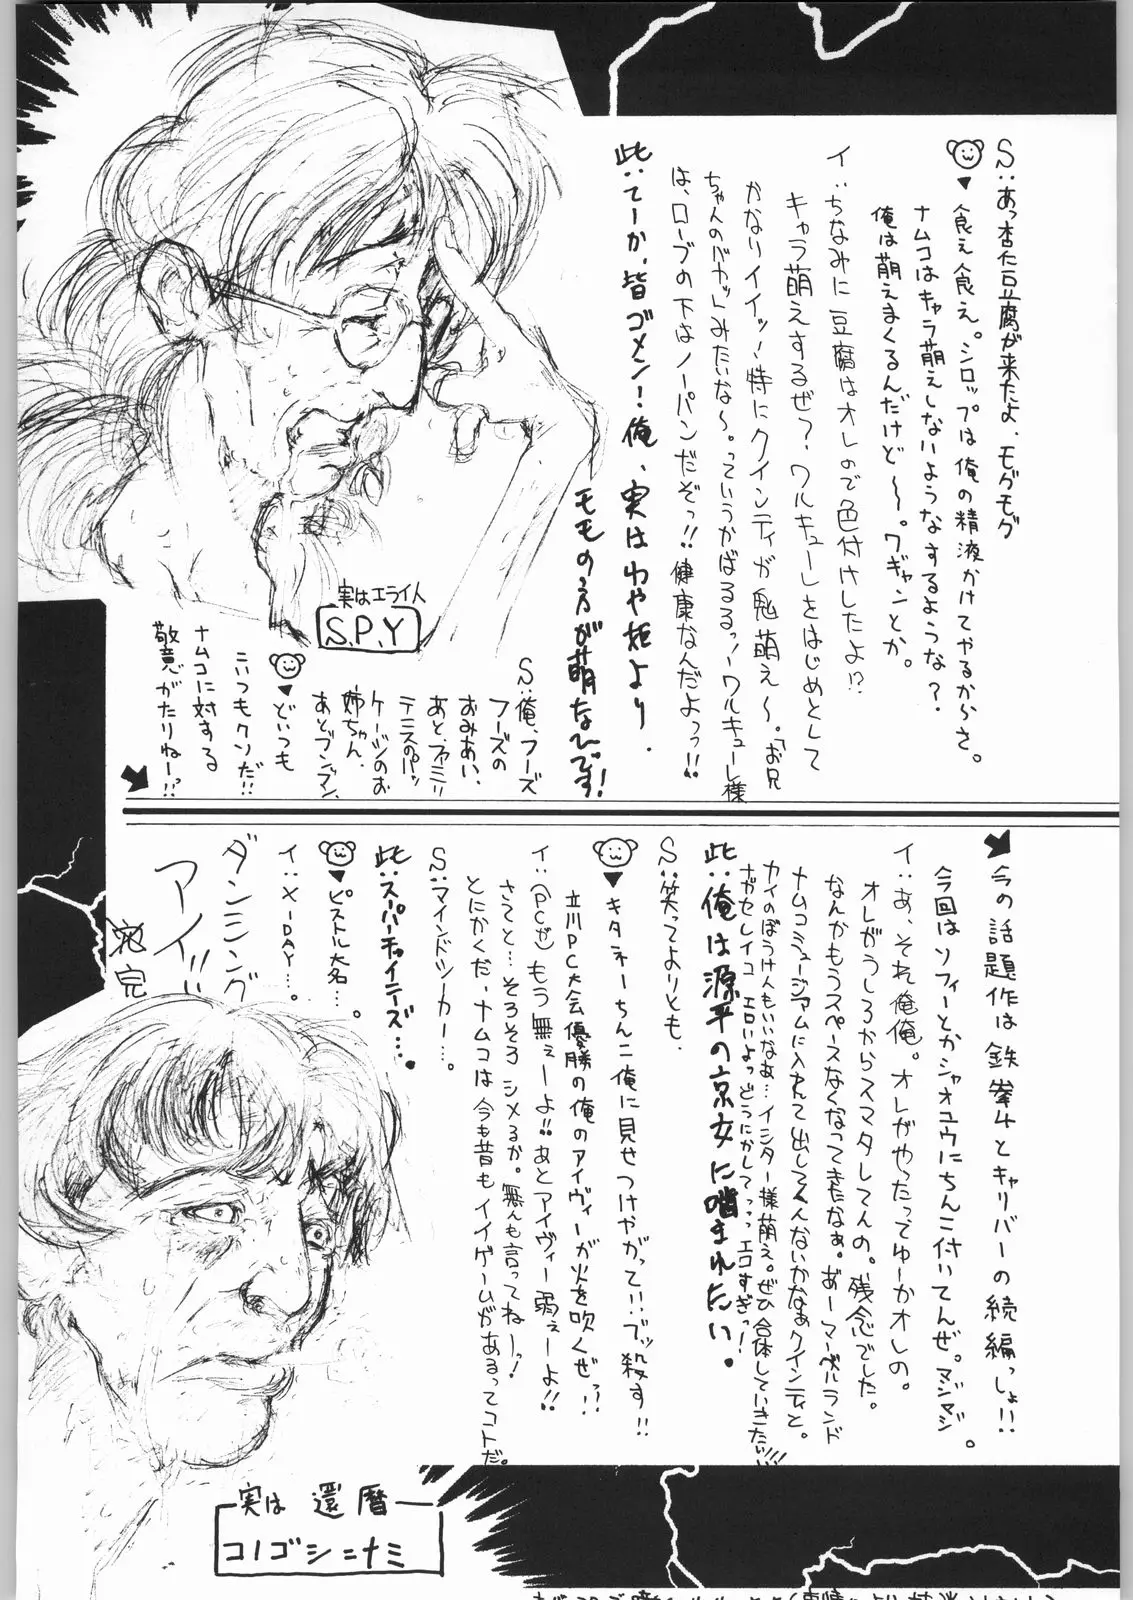 S：あっ杏に豆腐が来たよ、モグモグ
▼食え食え。シロップは俺の精液かけてやるからさ。
ナムコはキャラ萌えしないようなするような？
俺は萌えまくるんだけど〜。ワギャンとか。
イ：ちなみに豆腐はオレので色付けしたよ!?
キャラ萌えするぜ？ワルキューレをはじめとして
かなりイイッ！特にクインティが鬼萌え〜。「お兄
ちゃんのバカッ」みたいな〜。っていうかばるるっ！ワルキューレ様
は、ローブの下はノーパンだぞっ!!健康なんだよっっ!!
此：てーか、皆ゴメン！俺、実はわや姫より、
モモの方が萌なんです！
S：俺、フーズ
フーズの
おみあい、
あと、ファミリー
テニスのパッ
ケージのお
姉ちゃん、
あとブンブン、
▼どいつも
こいつもクソだ!!
ナムコに対する
敬意がたりねーっ!!
実はエライ人
S.P.Y
今の話題作は鉄拳4とキャリバーの続編っしょ!!
今回はソフィーとかシャオユウにちんこ付いてんぜ。マジマジ。
イ：あ、それ俺俺。オレがやったってゆーかオレの。
オレがうしろからスマタしてんの。残念でした。
なんかもうスペースなくなってきたなぁ。あーマーベルランド
ナムコミュージアムに入れて出してくんないかなぁクインティと。
カイのぼうけんもいいなぁ…イシター様萌え。ぜひ合体していきたい!!!
ガゼセレイコ エロいよっどうにかしてっっっ エロすぎっ！
此：俺は源平の京女に噛まれたい。
S：笑ってよりとも、
▼キタネーちんこ俺に見せつけやがって!!ブッ殺す!!
立川PC大会優勝の俺のアイヴィーが火を吹くぜっ??
イ：（PCが）もう無ぇーよ!!あとアイヴィー弱ぇーよ!!
さてと…そろそろシメるか。無んも言ってねーっ！
とにかくだ、ナムコは今も昔もイイゲームがあるってコトだ。
S：マインドシーカー…。
此：スーパーチャイニーズ…。
▼ピストル大名…。
イ：X-DAY…。
ダンシング
アイ!!
完
実は還暦
コノゴシニナミ